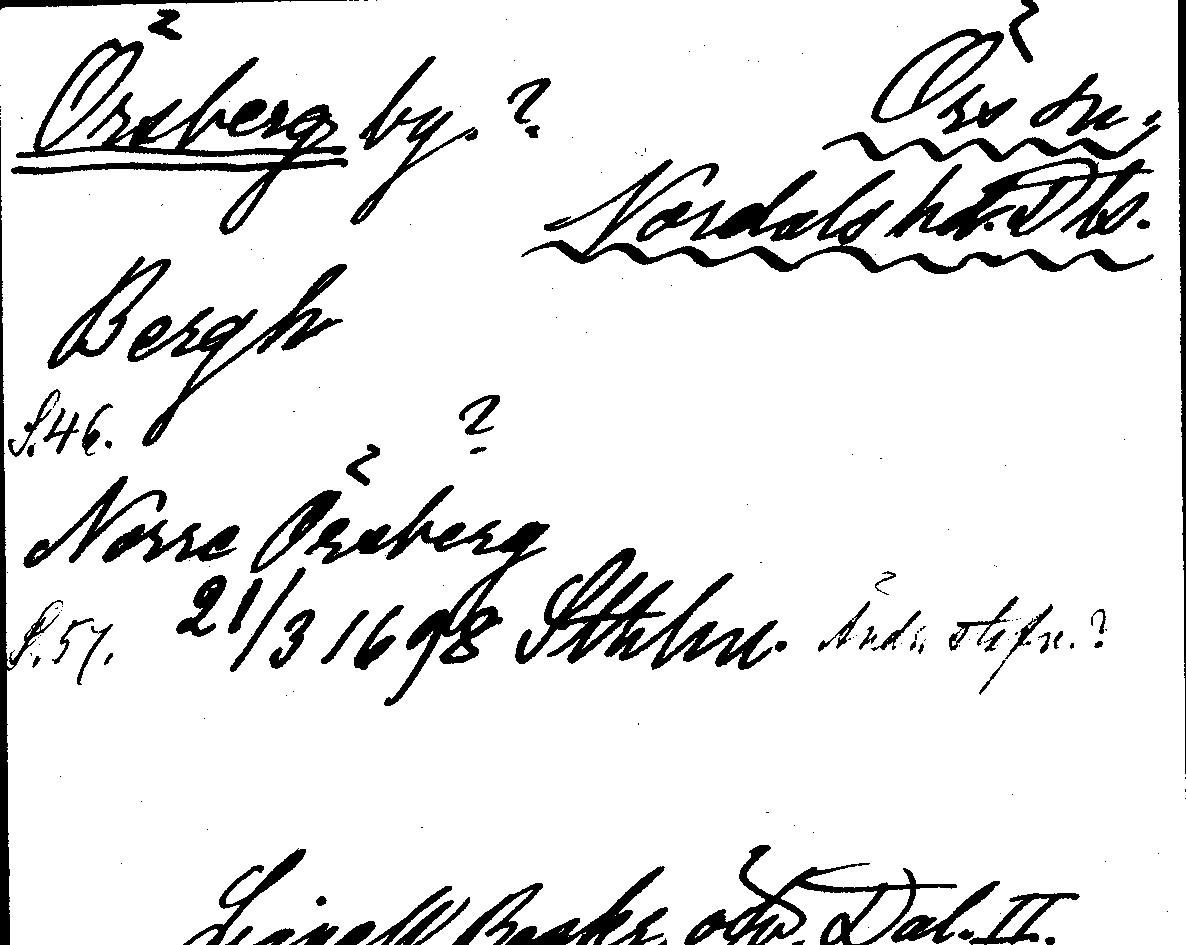 Örsberg by. ?
Örs sn,
Nordals hd. Dls.
Bergh
S. 46.
?
Norre Örsberg
S. 57. 21/3 1698 Sthlm. Ändr. stafn. ?
Lignell Beskr. öfv. Dal. II.